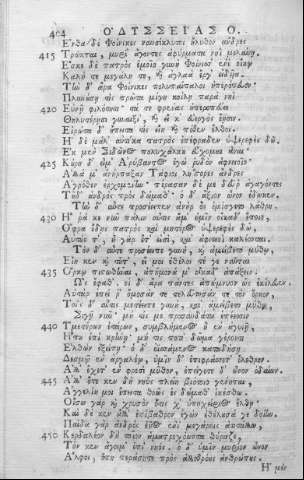 404 Ὀ Δ Υ Σ Σ Ε Ι Α Σ Ο.
Ἔνθα δὲ Φοίνικες ναυσίκλυτοι ἤλυθον ἄνδρες
415 Τρῶκται, μυρί' ἄγοντες ἀθύρματα νηῒ μελαίνῃ.
Ἔσκε δὲ πατρὸς ἐμοῖο γυνὴ Φοίνισσ' ἐνὶ οἴκῳ
Καλή τε μεγάλη τε, καὶ ἀγλαὰ ἔργ' εἰδυῖα.
Τὴν δ' ἄρα Φοίνικες πολυπαίπαλοι ὑπερόπευον.
Πλυνούσῃ τις πρῶτα μίγη κοίλῃ παρὰ νηῒ
420 Εὐνῇ φιλότητι· τά τε φρένας ἠπεροπεύει
Θηλυτέρῃσι γυναιξὶ, καὶ ἥ κ' εὐεργὸς ἔῃσιν.
Εἰρώτα δ' ἤπειτα τίς εἴη καὶ πόθεν ἔλθοι.
Ἡ δὲ μάλ' αὐτίκα πατρὸς ἐπέφραδεν ὑψερεφὲς δῶ.
Ἐκ μὲν Σιδῶνος πολυχάλκου εὔχομαι εἶναι.
425 Κούρη δ' εἴμ' Ἀρύβαντος ἐγὼ ῥυδὸν ἀφνειοῖο·
Ἀλλά μ' ἀνήρπαξαν Τάφιοι ληΐστορες ἄνδρες
Ἀγρόθεν ἐρχομένην· πέρασαν δέ με δεῦρ' ἀγαγόντες
Τοῦδ' ἀνδρὸς πρὸς δώμαθ'· ὁ δ' ἄξιον ὦνον ἔδωκεν.
Τὴν δ' αὖτε προσέειπεν ἀνὴρ ὃς ἐμίσγετο λάθρῃ.
430 Ἦ ῥά κε νῦν πάλιν αὖτις ἅμ' ἡμῖν οἴκαδ' ἕποιο,
Ὄφρα ἴδῃς πατρὸς καὶ μητέρος ὑψερεφὲς δῶ,
Αὐτούς τ'; ἦ γὰρ ἔτ' εἰσὶ, καὶ ἀφνειοὶ καλέονται.
Τὸν δ' αὖτε προσέειπε γυνὴ, καὶ ἀμείβετο μύθῳ.
Εἴη κεν καὶ τοῦτ', εἴ μοι ἐθέλοιτέ γε ναῦται
435 Ὅρκῳ πιστωθῆναι, ἀπήμονά μ' οἴκαδ' ἀπάξειν.
Ὣς ἔφαθ'. οἱ δ' ἄρα πάντες ἀπώμνυον ὡς ἐκέλευεν.
Αὐτὰρ ἐπεί ῥ' ὄμοσάν τε τελεύτησάν τε τὸν ὅρκον,
Τοῖς δ' αὖτις μετέειπε γυνὴ, καὶ ἀμείβετο μύθῳ.
Σιγῇ νῦν· μή τίς με προσαυδάτω ἐπέεσσιν
440 Ὑμετέρων ἑτάρων, συμβλήμενος ἢ ἐν ἀγυιῇ,
Ἤ που ἐπὶ κρήνῃ· μή τις ποτὶ δῶμα γέροντι
Ἐλθὼν ἐξείπῃ· ὁ δ' ὀϊσάμενος καταδήσῃ
Δεσμῷ ἐν ἀργαλέῳ, ὑμῖν δ' ἐπιφράσσετ' ὄλεθρον.
Ἀλλ' ἔχετ' ἐν φρεσὶ μῦθον, ἐπείγετε δ' ὦνον ὁδαίων.
445 Ἀλλ' ὅτε κεν δὴ νηῦς πλείη βιότοιο γένηται,
Ἀγγελίη μοι ἔπειτα θοῶς ἐς δώμαθ' ἱκέσθω.
Οἴσω γὰρ καὶ χρυσὸν ὅτις χ' ὑποχείριος ἔλθῃ·
Καὶ δέ κεν ἄλλ' ἐπίβαθρον ἐγὼν ἐθέλουσά γε δοίην.
Παῖδα γὰρ ἀνδρὸς ἑῆος ἐνὶ μεγάροις ἀτιτάλλω,
450 Κερδαλέον δὴ τοῖον ἁματροχόωντα θύραζε,
Τόν κεν ἄγοιμ' ἐπὶ νηός. ὁ δ' ὑμῖν μυρίον ὦνον
Ἄλφοι, ὅπη περάσητε πρὸς ἀλλοθρόους ἀνθρώπους.
Ἡ μὲν